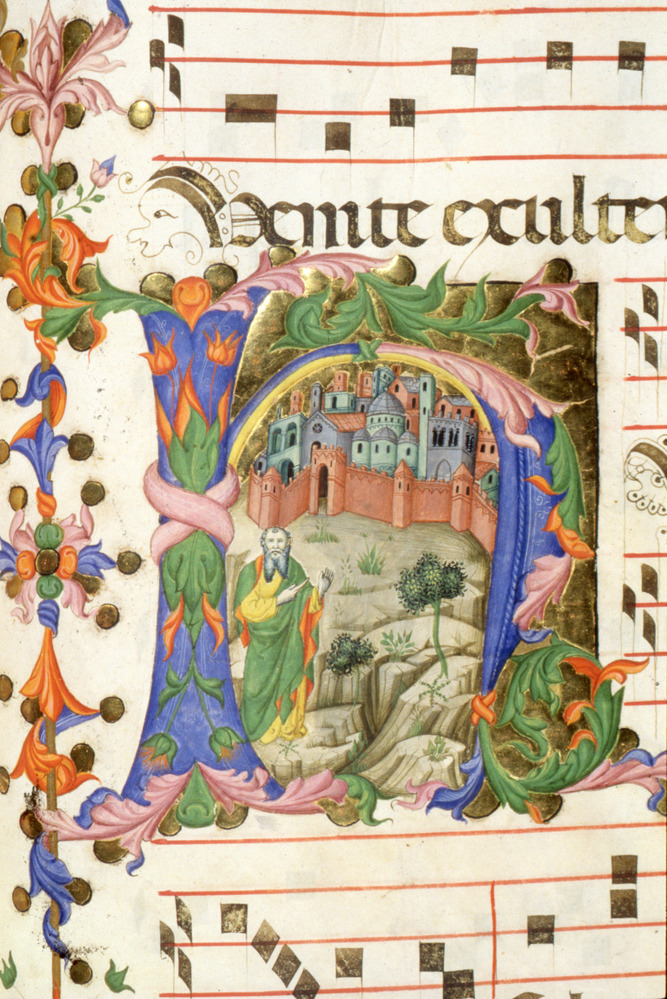 Venite exulte
H